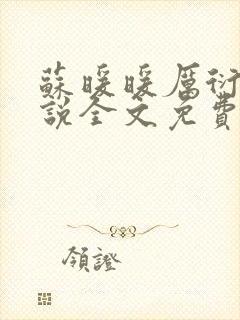 蘇暖暖厲衍
說全文免費
領證